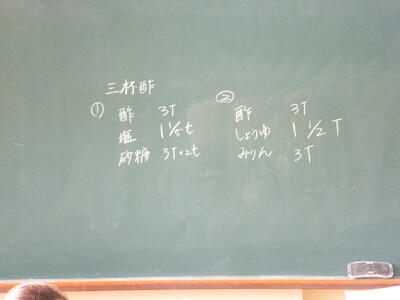 三杯酢
① 酢 3T
塩 1 1/5 t
砂糖 3T+2t
② 酢 3T
しょうゆ 1 1/2 T
みりん 3T